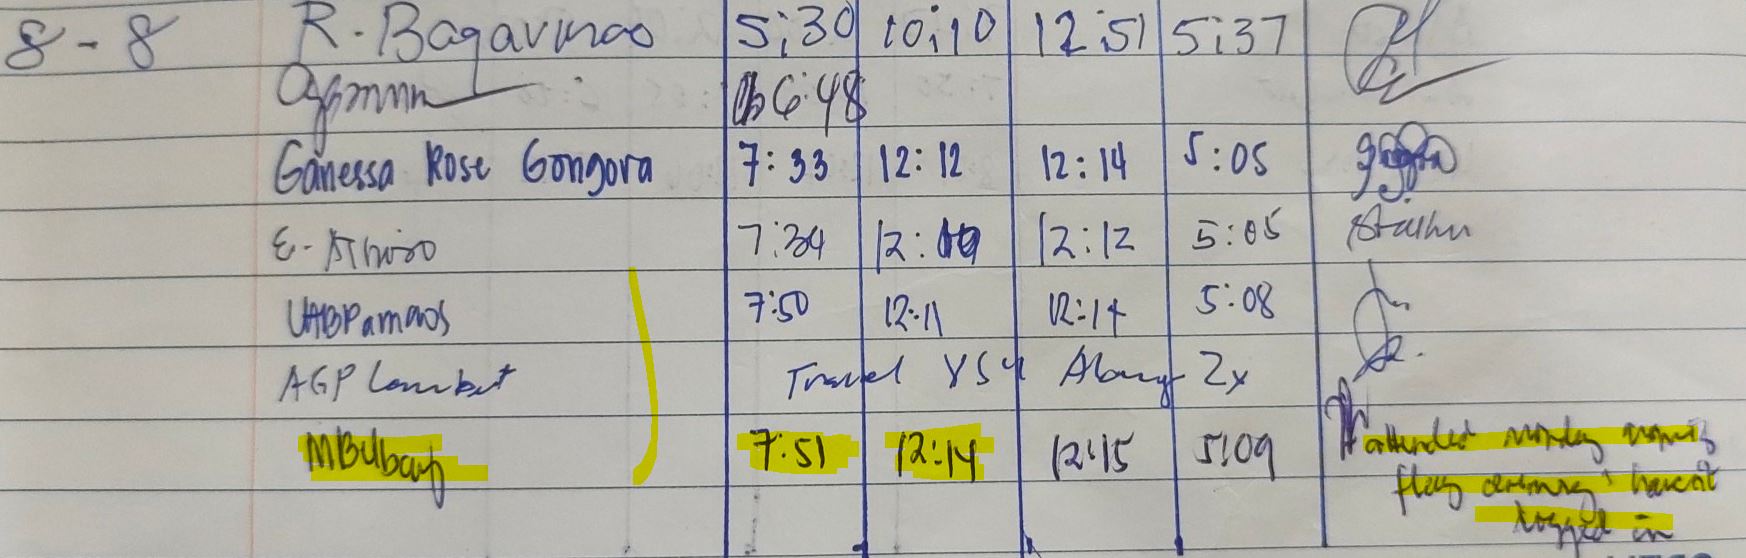 8-8 R. Bagavinao 5:30 10:10 12:51 5:37
6:48
Ganessa Rose Gongora 7:33 12:12 12:14 5:05
E. 7:34 12:10 12:12 5:05
7:50 12:11 12:14 5:08
AGP Lambat Travel Along 2x
MBulbay 7:51 12:14 12:15 5:09 attended monday morning
flag ceremony haven't
logged in